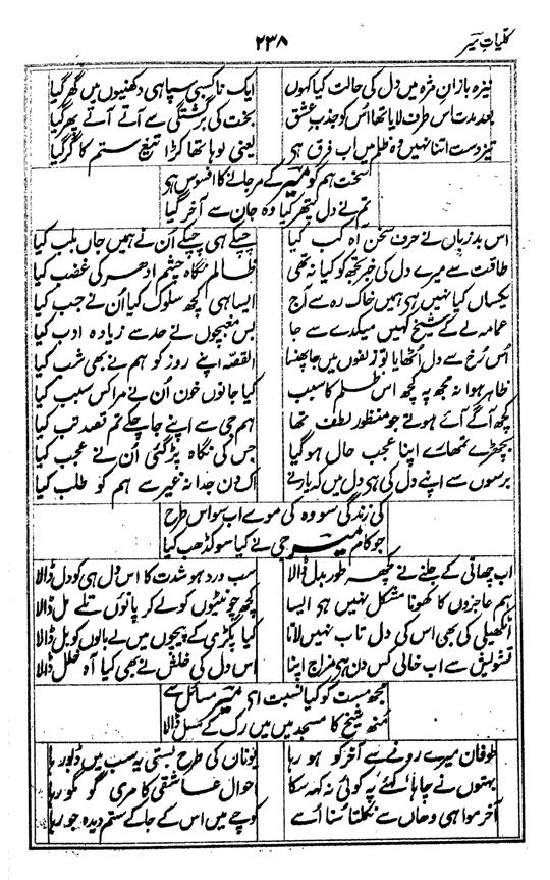 کلیاتِ میر
۲۳۸
نیزہ بازانِ مژہ میں دل کی حالت کیا کہوں
ایک ناکسبی سپاہی دکھنیوں میں گھر گیا
بعد مدت اس طرف لایا تھا اُس کو جذبِ عشق
بخت کی برگشتگی سے آتے آتے پھر گیا
تیز دست اتنا نہیں وہ ظلم میں اب فرق ہی
یعنی لوہا تھا کڑا تیغِ ستم کا گر گیا
سخت ہم کو میر کے مر جانے کا افسوس ہی
تم نے دل پتھر کیا وہ جان سے آخر گیا
اس بد زباں نے حرف سخن آہ کب کیا
چپکے ہی چپکے اُن نے ہمیں جاں بلب کیا
طاقت سے میرے دل کی خبر تجھ کو کیا نہ تھی
ظالم نگاہِ چشم ادھر کی غضب کیا
یکساں کیا نہیں ہی ہمیں خاک رہ سے آج
ایسا ہی کچھ سلوک کیا اُن نے جب کیا
عمامہ لے کے شیخ کہیں میکدے سے جا
بس مغبچوں نے حد سے زیادہ ادب کیا
اُس رُخ سے دل اُٹھایا تو زلفوں میں جا پھنسا
القصہ اپنے روز کو ہم نے بھی شب کیا
ظاہر ہوا نہ مجھ پہ کچھ اس ظلم کا سبب
کیا جانوں خون اُن نے مرا کس سبب کیا
کچھ آگے آئے ہوتے جو منظورِ لطف تھا
ہم جی سے اپنے جا چکے تم قصد تب کیا
بچھڑے تمھارے اپنا عجب حال ہو گیا
جس کی نگاہ پڑ گئی اُن نے عجب کیا
برسوں سے اپنے دل کی ہی دل میں کہ یار نے
اک دن جدا نہ غیر سے ہم کو طلب کیا
کی زندگی سو وہ کی موے اب سو اس طرح
جو کام میر جی نے کیا سو کڈھب کیا
اب چھاتی کے جلنے نے کچھ طور بدل ڈالا
سب درد ہو شدت کا اس دل ہی کو دل ڈالا
ہم عاجزوں کا کھونا مشکل نہیں ہی ایسا
کچھ چونٹیوں کو لے کر پانوں تلے مل ڈالا
اٹکھیلی کی بھی اس کی دل تاب نہیں لاتا
کیا پگڑی کے پیچوں میں لے بالوں کو بل ڈالا
تشویش سے اب خالی کس دن ہی مزاج اپنا
اس دل کی خلش نے بھی کیا آہ خلل ڈالا
مجھ مست کو کیا نسبت ای میر مسائل سے
منھ شیخ کا مسجد میں میں رک کے مسل ڈالا
طوفان میرے رونے سے آخر کو ہو رہا
یوناں کی طرح بستی یہ سب میں ڈبو رہا
بہتوں نے چاہا کہئے پہ کوئی نہ کہہ سکا
احوال عاشقی کا مری گو مگو رہا
آخر موا ہی وھاں سے نکلتا سُنا اُسے
کوچے میں اس کے جا کے ستم دیدہ جو رہا